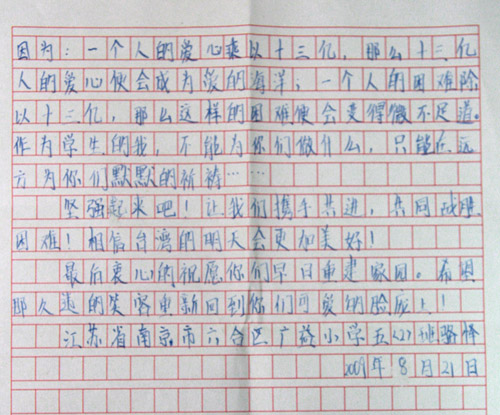 因为：一个人的爱心乘以十三亿，那么十三亿
人的爱心便会成为爱的海洋；一个人的困难除
以十三亿，那么这样的困难便会变得微不足道。
作为学生的我，不能为你们做什么，只能在远
方为你们默默的祈祷……
坚强起来吧！让我们携手共进，共同战胜
困难！相信台湾的明天会更加美好！
最后衷心的祝愿你们早日重建家园。希望
那久违的笑容重新回到你们可爱的脸庞上！
江苏省南京市六合区广益小学五(2)班骆怿
2009年8月21日